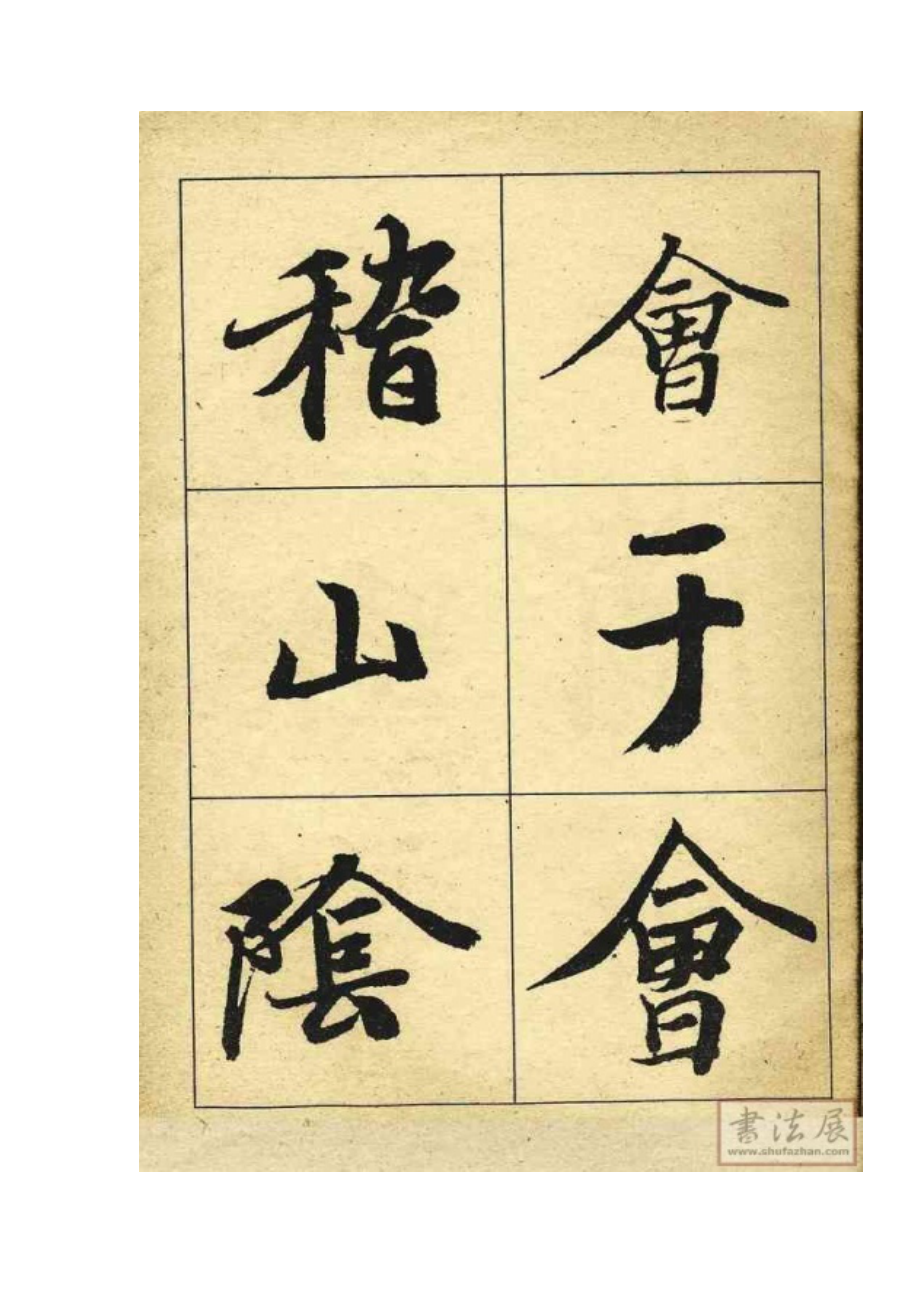 會于會
稽山陰
書法展
www.shufazhan.com